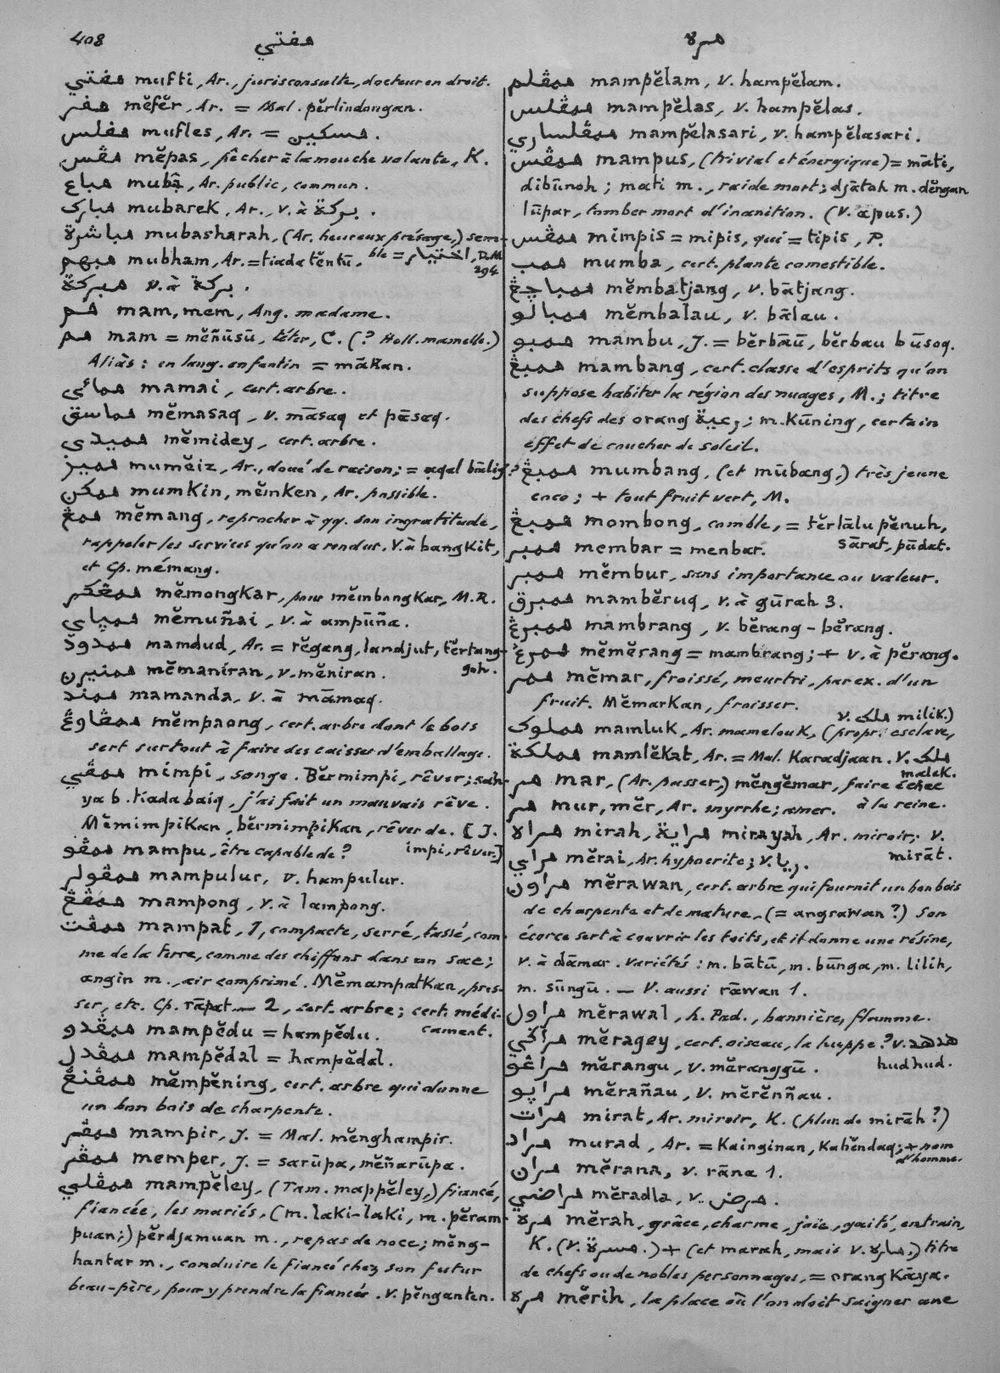 408
مفتي
مره
مفتي mufti, Ar., jurisconsulte, docteur en droit.
مفر měfěr, Ar. = Mal. pěrlindongan.
مفلس mufles, Ar. = مسكين.
مڤس měpas, pêcher à la mouche volante, K.
مباع mubạ̄, Ar. public, commun.
مبارك mubarek, Ar., v. à بركة.
مباشرة mubasharah, (Ar. heureux présage,) sem-
ble = اختيار, D.M. 294.
مبهم mubham, Ar. = tiada těntū.
مبركة v. à بركة.
مم mam, mem, Ang. madame.
مم mam = měñūsū, téter, C. (? Holl. mamelle.)
Aliàs: en lang. enfantin = mākan.
مماي mamai, cert. arbre.
مماسق měmasaq, v. māsaq et pāsaq.
مميدي měmidey, cert. arbre.
مميز muměiz, Ar., doué de raison; = aqal bālig?
ممكن mumkin, měmken, Ar. possible.
ممڠ měmang, reprocher à qq. son ingratitude,
rappeler les services qu'on a rendus. V. à bangkit,
et Cp. mémang.
ممڠكر měmongkar, pour měmbongkar, M.R.
ممڽاي měmuñai, v. à ampūña.
ممدود mamdud, Ar. = rěgang, landjut, těrtang-
goh.
ممنيرن měmaniran, v. měniran.
ممند mamanda, v. à māmaq.
ممڤاوڠ měmpaong, cert. arbre dont le bois
sert surtout à faire des caisses d'emballage.
ممڤي mimpi, songe. Běrmimpi, rêver; sah-
ya b. tiada baiq, j'ai fait un mauvais rêve.
Měmimpikan, běrmimpikan, rêver de. [J.
impi, rêver]
ممڤو mampu, être capable de?
ممڤولر mampulur, v. hampulur.
ممڤڠ mampong, v. à lampong.
ممڤت mampat, J, compacte, serré, tassé, com-
me de la terre, comme des chiffons dans un sac;
angin m., air comprimé. Měmampatkan, pres-
ser, etc. Cp. rāpat — 2, cert. arbre; cert. médi-
cament.
ممڤدو mampědu = hampědu.
ممڤدل mampědal = hampědal.
ممڤنڠ měmpěning, cert. arbre qui donne
un bon bois de charpente.
ممڤر mampir, J. = Mal. měnghampir.
ممڤر memper, J. = sarūpa, měñarūpa.
ممڤلي mampěley, (Tam. mappěley,) fiancé,
fiancée, les mariés, (m. laki-laki, m. pěram-
puan;) pěrdjamuan m., repas de noce; měng-
hantar m., conduire le fiancé chez son futur
beau-père, pour y prendre la fiancée. v. pěnganten.
ممڤلم mampělam, v. hampělam.
ممڤلس mampělas, v. hampělas.
ممڤلساري mampělasari, v. hampělasari.
ممڤس mampus, (trivial et énergique) = māti,
dibūnoh; mati m., raide mort; djātoh m. děngan
lūpar, tomber mort d'inanition. (V. apus.)
ممڤس mimpis = mipis, qui = tipis, P.
ممب mumba, cert. plante comestible.
ممباچڠ měmbatjang, v. bātjang.
ممبالو měmbalau, v. bālau.
ممبو mambu, J. = běrbāū, běrbau būsoq.
ممبڠ mambang, cert. classe d'esprits qu'on
suppose habiter la région des nuages, M.; titre
des chefs des orang رعية; m. kūning, certain
effet de coucher de soleil.
ممبڠ mumbang, (et mūbang,) très jeune
coco; + tout fruit vert, M.
ممبڠ mombong, comble, = těrlālu pěnuh,
sārat, pūdat.
ممبر membar = menbar.
ممبر měmbur, sans importance ou valeur.
ممبرق mamběruq, v. à gūrah 3.
ممبرڠ mambrang, v. běrang-běrang.
ممرڠ měměrang = mambrang; + v. à pěrang.
ممر měmar, froissé, meurtri, par ex. d'un
fruit. Měmarkan, froisser.
مملوك mamluk, Ar. mamelouk, (propr. esclave,
v. ملك milik.)
مملكة mamlěkat, Ar. = Mal. karadjaan. V. ملك
malek.
مر mar, (Ar. passer,) měngěmar, faire échec
à la reine.
مر mur, měr, Ar. myrrhe; amer.
مراه mirah, مراية mirayah, Ar. miroir; v.
mirāt.
مراي měrai, Ar. hypocrite; v. ريا.
مراون měrawan, cert. arbre qui fournit un bon bois
de charpente et de mâture, (= angrawan?) Son
écorce sert à couvrir les toits, et il donne une résine,
v. à dāmar. Variétés: m. bātū, m. būnga, m. lilih,
m. sūngū. — V. aussi rāwan 1.
مراول měrawal, h. Pad., bannière, flamme.
مراڬي měragey, cert. oiseau, la huppe? v. هدهد
hudhud.
مراڠو měrangu, v. měranggū.
مراڽو měrañau, v. měrěnñau.
مرات mirat, Ar. miroir, K. (plur. de mirāh?)
مراد murad, Ar. = kainginan, kahěndaq; + nom
d'homme.
مران měrana, v. rāna 1.
مراضي měradla, v. مرض.
مره měrah, grâce, charme, joie, gaîté, entrain,
K. (V. مسرة.) + (et marah, mais v. ماره,) titre
de chefs ou de nobles personnages, = orang kāya.
مره měrih, la place où l'on doit saigner une